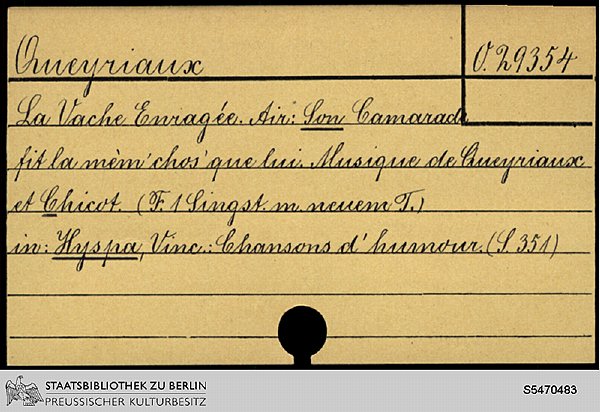 Queyriaux
O. 29354
La Vache Enragée. Air: Son Camarade
fit la mêm' chos' que lui. Musique de Queyriaux
et Chicot. (F. 1 Singst. m. neuem T.)
in: Hyspa, Vinc.: Chansons d'humour. (S. 351)
STAATSBIBLIOTHEK ZU BERLIN
PREUSSISCHER KULTURBESITZ
S5470483